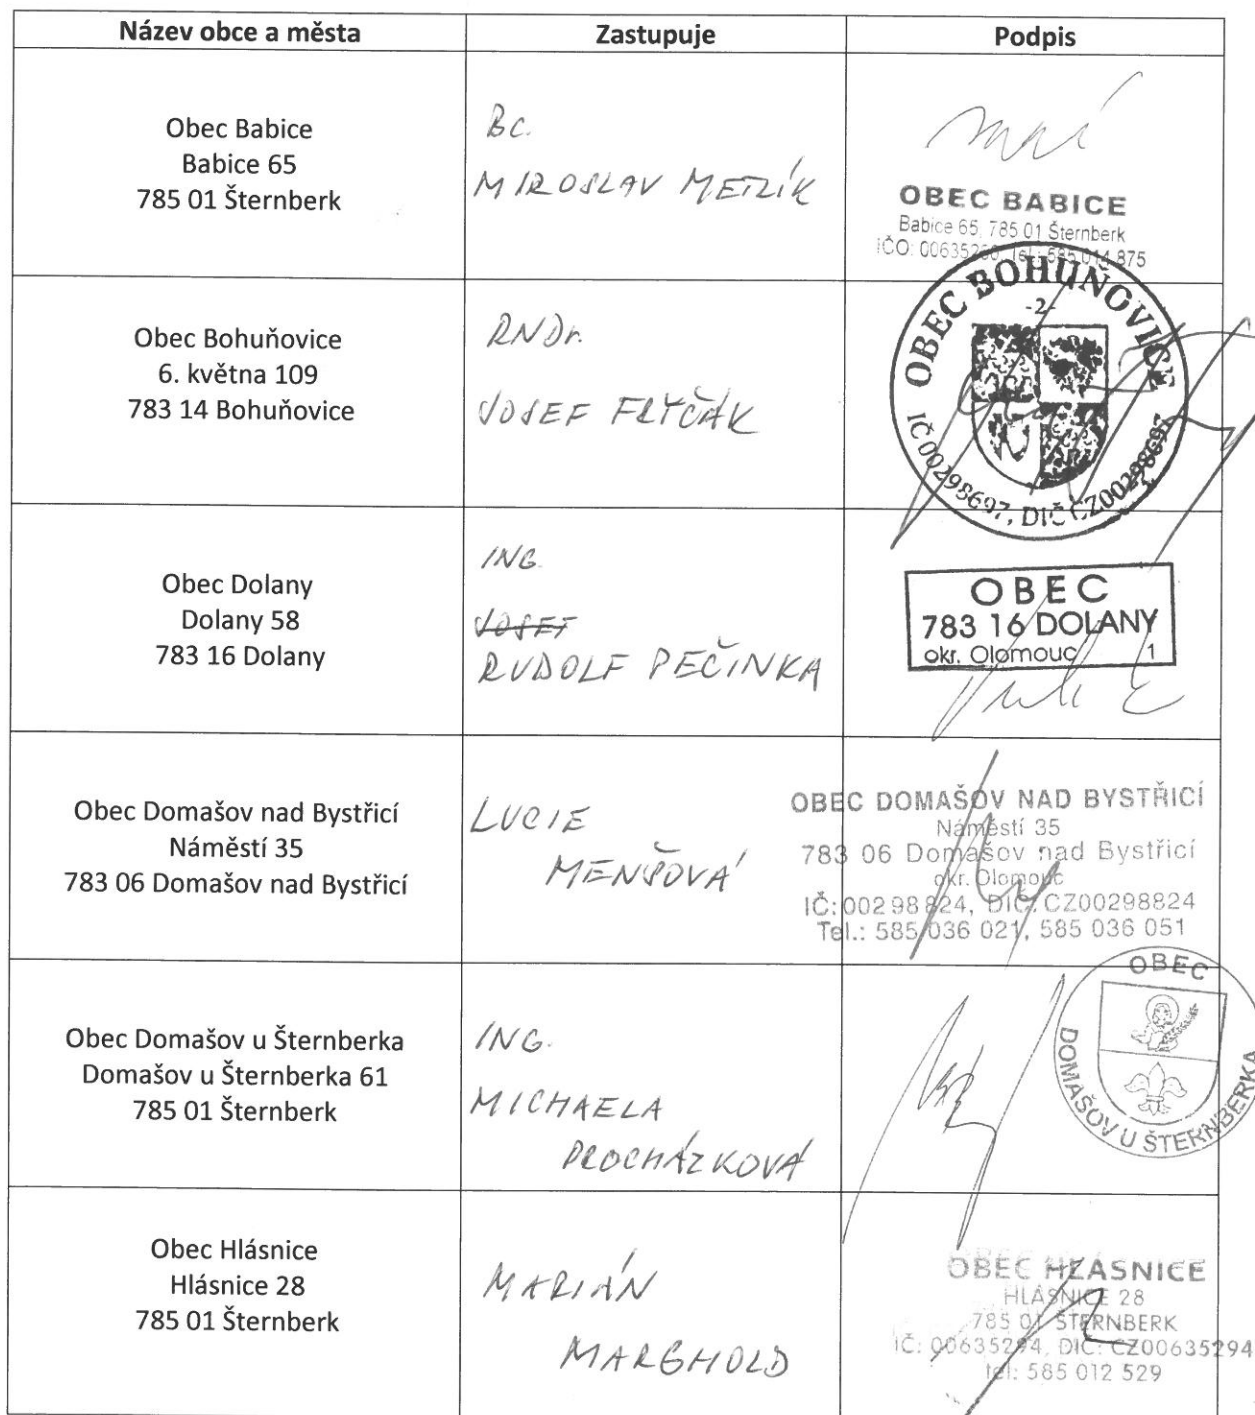 Název obce a města
Zastupuje
Podpis
Obec Babice
Babice 65
785 01 Šternberk
BC.
MIROSLAV METZLÍK
OBEC BABICE
Babice 65, 785 01 Šternberk
tel.: 585 014 875
Obec Bohuňovice
6. května 109
783 14 Bohuňovice
RNDr.
JOSEF FRYČÁK
OBEC BOHUŇOVICE
-2-
IČ 00298697, DIČ CZ00298697
Obec Dolany
Dolany 58
783 16 Dolany
ING.
JOSEF
RUDOLF PEČINKA
OBEC
783 16 DOLANY
okr. Olomouc 1
Obec Domašov nad Bystřicí
Náměstí 35
783 06 Domašov nad Bystřicí
LUCIE
MENŠOVÁ
OBEC DOMAŠOV NAD BYSTŘICÍ
Náměstí 35
783 06 Domašov nad Bystřicí
okr. Olomouc
IČ: 002 98 824, DIČ: CZ00298824
Tel.: 585 036 021, 585 036 051
Obec Domašov u Šternberka
Domašov u Šternberka 61
785 01 Šternberk
ING.
MICHAELA
PROCHÁZKOVÁ
OBEC
DOMAŠOV U ŠTERNBERKA
Obec Hlásnice
Hlásnice 28
785 01 Šternberk
MARIÁN
MARGHOLD
OBEC HLÁSNICE
HLÁSNICE 28
785 01 ŠTERNBERK
IČ: 00635294, DIČ: CZ00635294
tel: 585 012 529